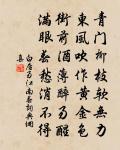 青門柳枝軟無力
東風吹作黃金色
街前酒薄醉易醒
滿眼春愁消不得
白居易